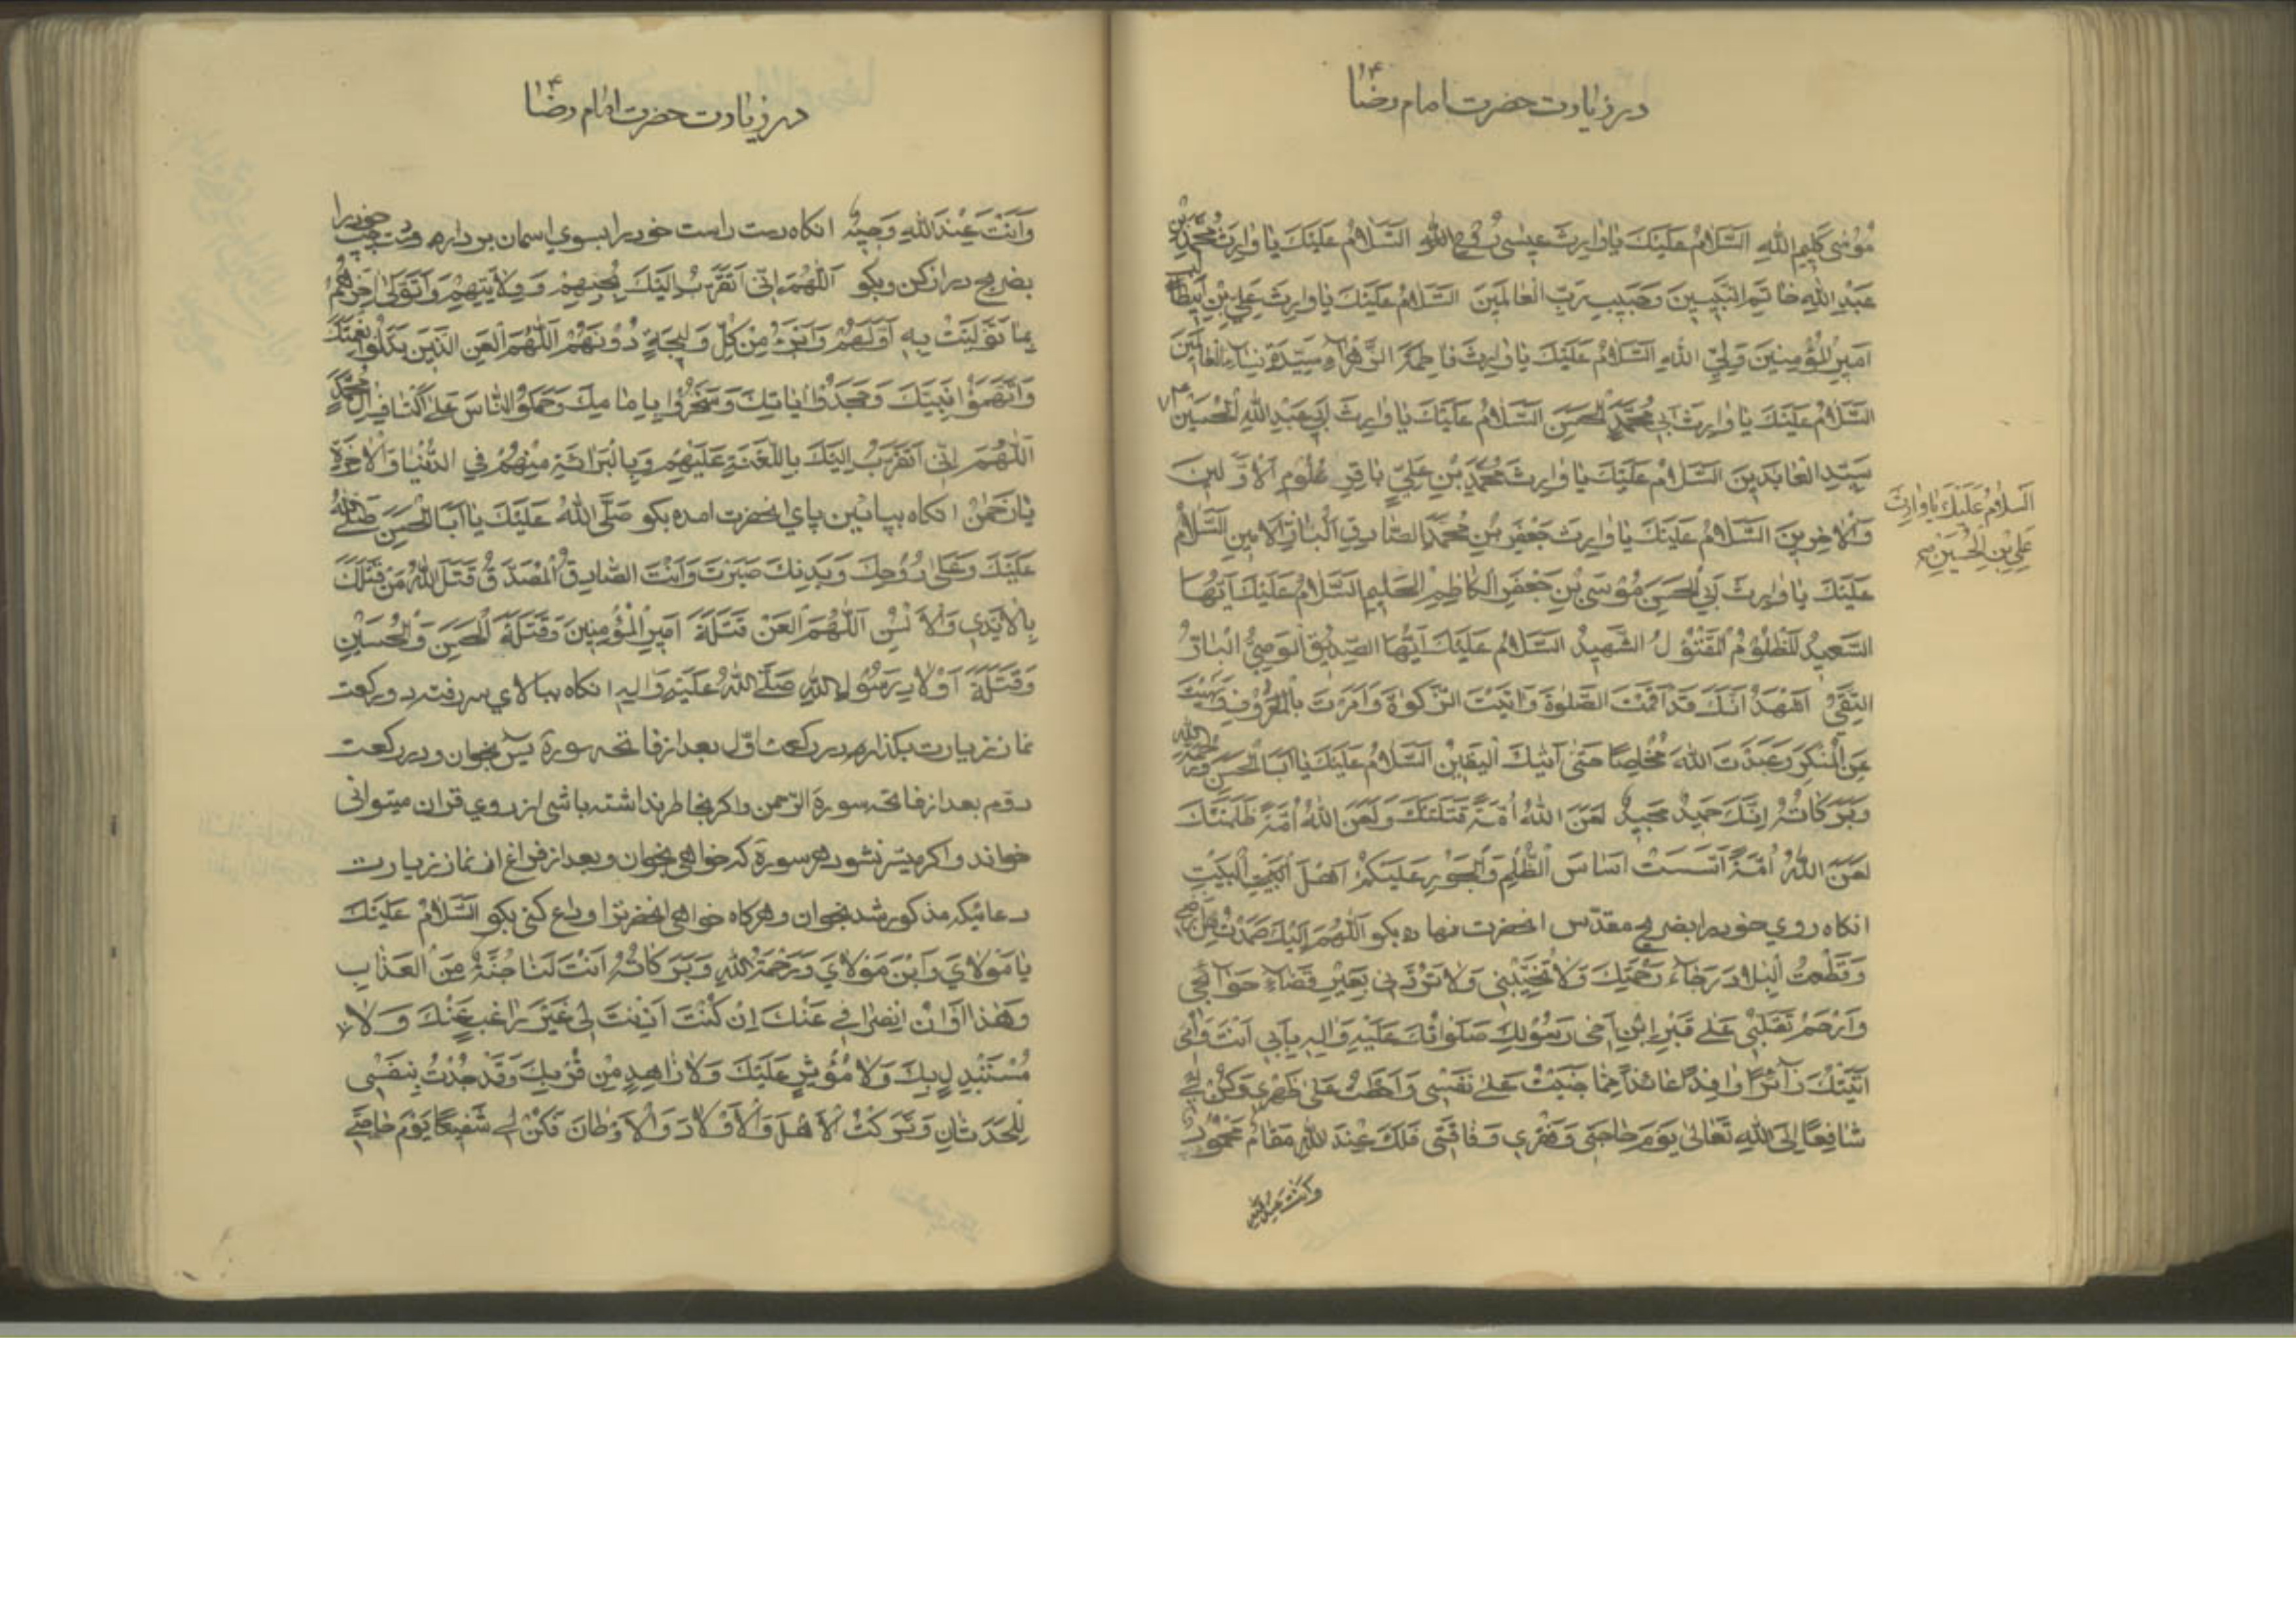 در زیارت حضرت امام رضا ع
مُوسٰى كَلِيمِ اللّٰهِ اَلسَّلٰامُ عَلَيْكَ يٰا وٰارِثَ عِيسٰى رُوحِ اللّٰهِ اَلسَّلٰامُ عَلَيْكَ يٰا وٰارِثَ مُحَمَّدِ بْنِ
عَبْدِ اللّٰهِ خٰاتَمِ النَّبِيّينَ وَحَبِيبِ رَبِّ الْعٰالَمِينَ اَلسَّلٰامُ عَلَيْكَ يٰا وٰارِثَ عَلِيِّ بْنِ اَبِيطٰالِبٍ
اَمِيرِ الْمُؤْمِنِينَ وَلِيِّ اللّٰهِ اَلسَّلٰامُ عَلَيْكَ يٰا وٰارِثَ فٰاطِمَةَ الزَّهْرٰاءِ سَيِّدَةِ نِسٰاءِ الْعٰالَمِينَ
اَلسَّلٰامُ عَلَيْكَ يٰا وٰارِثَ اَبِي مُحَمَّدٍ الْحَسَنِ اَلسَّلٰامُ عَلَيْكَ يٰا وٰارِثَ اَبِي عَبْدِ اللّٰهِ الْحُسَيْنِ
سَيِّدِ الْعٰابِدِينَ اَلسَّلٰامُ عَلَيْكَ يٰا وٰارِثَ مُحَمَّدِ بْنِ عَلِيٍّ بٰاقِرِ عُلُومِ الْاَوَّلِينَ
اَلسَّلٰامُ عَلَيْكَ يٰا وٰارِثَ
عَلِيِّ بْنِ الْحُسَيْنِ صح
وَالْاٰخِرِينَ اَلسَّلٰامُ عَلَيْكَ يٰا وٰارِثَ جَعْفَرِ بْنِ مُحَمَّدٍ الصّٰادِقِ الْبٰارِّ الْاَمِينِ اَلسَّلٰامُ
عَلَيْكَ يٰا وٰارِثَ اَبِي الْحَسَنِ مُوسَى بْنِ جَعْفَرٍ الْكٰاظِمِ الْحَلِيمِ اَلسَّلٰامُ عَلَيْكَ اَيُّهَا
السَّعِيدُ الْمَظْلُومُ الْمَقْتُولُ الشَّهِيدُ اَلسَّلٰامُ عَلَيْكَ اَيُّهَا الصِّدِّيقُ الْوَصِيُّ الْبٰارُّ
التَّقِيُّ اَشْهَدُ اَنَّكَ قَدْ اَقَمْتَ الصَّلٰوةَ وَاٰتَيْتَ الزَّكٰوةَ وَاَمَرْتَ بِالْمَعْرُوفِ وَنَهَيْتَ
عَنِ الْمُنْكَرِ وَعَبَدْتَ اللّٰهَ مُخْلِصًا حَتّٰى اَتٰيكَ الْيَقِينُ اَلسَّلٰامُ عَلَيْكَ يٰا اَبَا الْحَسَنِ وَرَحْمَةُ اللّٰهِ
وَبَرَكٰاتُهُ اِنَّكَ حَمِيدٌ مَجِيدٌ لَعَنَ اللّٰهُ اُمَّةً قَتَلَتْكَ وَلَعَنَ اللّٰهُ اُمَّةً ظَلَمَتْكَ
لَعَنَ اللّٰهُ اُمَّةً اَسَّسَتْ اَسٰاسَ الظُّلْمِ وَالْجَوْرِ عَلَيْكُمْ اَهْلَ الْبَيْتِ
انكاه روي خود را بضريح مقدّس انحضرت نهاده بكو اَللّٰهُمَّ اِلَيْكَ صَمَدْتُ مِنْ اَرْضِي
وَقَطَعْتُ الْبِلٰادَ رَجٰاءَ رَحْمَتِكَ وَلٰا تُخَيِّبْنِي وَلٰا تَرُدَّنِي بِغَيْرِ قَضٰاءِ حَوٰائِجِي
وَارْحَمْ تَقَلُّبِي عَلٰى قَبْرِ ابْنِ اَخِي رَسُولِكَ صَلَوٰاتُكَ عَلَيْهِ وَاٰلِهِ بِاَبِي اَنْتَ وَاُمِّي
اَتَيْتُكَ زٰائِرًا وٰافِدًا عٰائِذًا مِمّٰا جَنَيْتُ عَلٰى نَفْسِي وَاحْتَطَبْتُ عَلٰى ظَهْرِي وَكُنْ لِي
شٰافِعًا اِلَى اللّٰهِ تَعٰالٰى يَوْمَ حٰاجَتِي وَفَقْرِي وَفٰاقَتِي فَلَكَ عِنْدَ اللّٰهِ مَقٰامٌ مَحْمُودٌ
وَاَنْتَ عِنْدَ اللّٰهِ
در زیارت حضرت امام رضا ع
وَاَنْتَ عِنْدَ اللّٰهِ وَجِيهٌ انكاه دست راست خود را بسوي اسمان بردار و دست چپ خود را
بضريح دراز كن وبكو اَللّٰهُمَّ اِنِّي اَتَقَرَّبُ اِلَيْكَ بِحُبِّهِمْ وَوِلٰايَتِهِمْ وَاَتَوَلّٰى اٰخِرَهُمْ
بِمٰا تَوَلَّيْتُ بِهِ اَوَّلَهُمْ وَاَبْرَءُ مِنْ كُلِّ وَلِيجَةٍ دُونَهُمْ اَللّٰهُمَّ الْعَنِ الَّذِينَ بَدَّلُوا نِعْمَتَكَ
وَاتَّهَمُوا نَبِيَّكَ وَجَحَدُوا اٰيٰاتِكَ وَسَخِرُوا بِاِمٰامِكَ وَحَمَلُوا النّٰاسَ عَلٰى اَكْتٰافِ اٰلِ مُحَمَّدٍ
اَللّٰهُمَّ اِنِّي اَتَقَرَّبُ اِلَيْكَ بِاللَّعْنَةِ عَلَيْهِمْ وَبِالْبَرٰائَةِ مِنْهُمْ فِي الدُّنْيٰا وَالْاٰخِرَةِ
يٰا رَحْمٰنُ انكاه بپائين پاي انحضرت امده بكو صَلَّى اللّٰهُ عَلَيْكَ يٰا اَبَا الْحَسَنِ صَلَّى اللّٰهُ
عَلَيْكَ وَعَلٰى رُوحِكَ وَبَدَنِكَ صَبَرْتَ وَاَنْتَ الصّٰادِقُ الْمُصَدَّقُ قَتَلَ اللّٰهُ مَنْ قَتَلَكَ
بِالْاَيْدِي وَالْاَلْسُنِ اَللّٰهُمَّ الْعَنْ قَتَلَةَ اَمِيرِ الْمُؤْمِنِينَ وَقَتَلَةَ الْحَسَنِ وَالْحُسَيْنِ
وَقَتَلَةَ اَوْلٰادِ رَسُولِ اللّٰهِ صَلَّى اللّٰهُ عَلَيْهِ وَاٰلِهِ انكاه ببالاي سر رفته دو ركعت
نماز زيارت بكذار در ركعت اوّل بعد از فاتحه سورة يٓس بخوان ودر ركعت
دوّم بعد از فاتحه سورة الرّحمن واكر بخاطر نداشته باشى از روي قران ميتوانى
خواند واكر ميسّر نشود هر سورة كه خواهى بخوان وبعد از فراغ از نماز زيارت
دعائيكه مذكور شد بخوان وهركاه خواهى انحضرترا وداع كنى بكو اَلسَّلٰامُ عَلَيْكَ
يٰا مَوْلٰايَ وَابْنَ مَوْلٰايَ وَرَحْمَةُ اللّٰهِ وَبَرَكٰاتُهُ اَنْتَ لَنٰا جُنَّةٌ مِنَ الْعَذٰابِ
وَهٰذٰا اَوٰانُ انْصِرٰافِي عَنْكَ اِنْ كُنْتَ اَذِنْتَ لِي غَيْرَ رٰاغِبٍ عَنْكَ وَلٰا
مُسْتَبْدِلٍ بِكَ وَلٰا مُؤْثِرٍ عَلَيْكَ وَلٰا زٰاهِدٍ مِنْ قُرْبِكَ وَقَدْ جُدْتُ بِنَفْسِي
لِلْحَدَثٰانِ وَتَرَكْتُ الْاَهْلَ وَالْاَوْلٰادَ وَالْاَوْطٰانَ فَكُنْ لِي شَفِيعًا يَوْمَ حٰاجَتِي